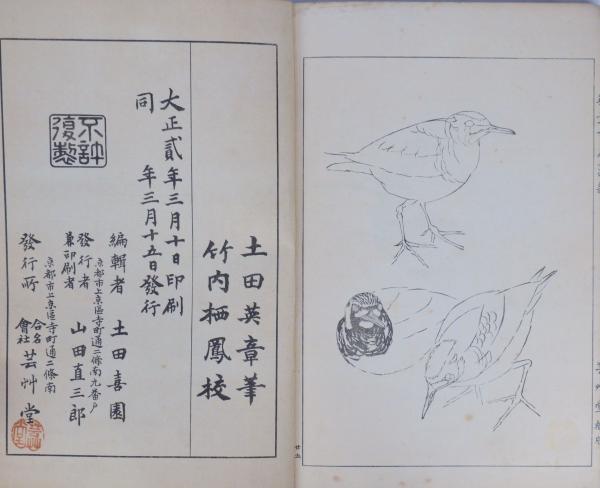 土田英章筆
竹内栖鳳校
大正貳年三月十日印刷
同　年三月十五日發行
編輯者　土田喜園
京都市上京區寺町通二條南九番戶
發行者
兼印刷者　山田直三郎
京都市上京區寺町通二條南
發行所　合名會社　芸艸堂
不許
復製
廿五